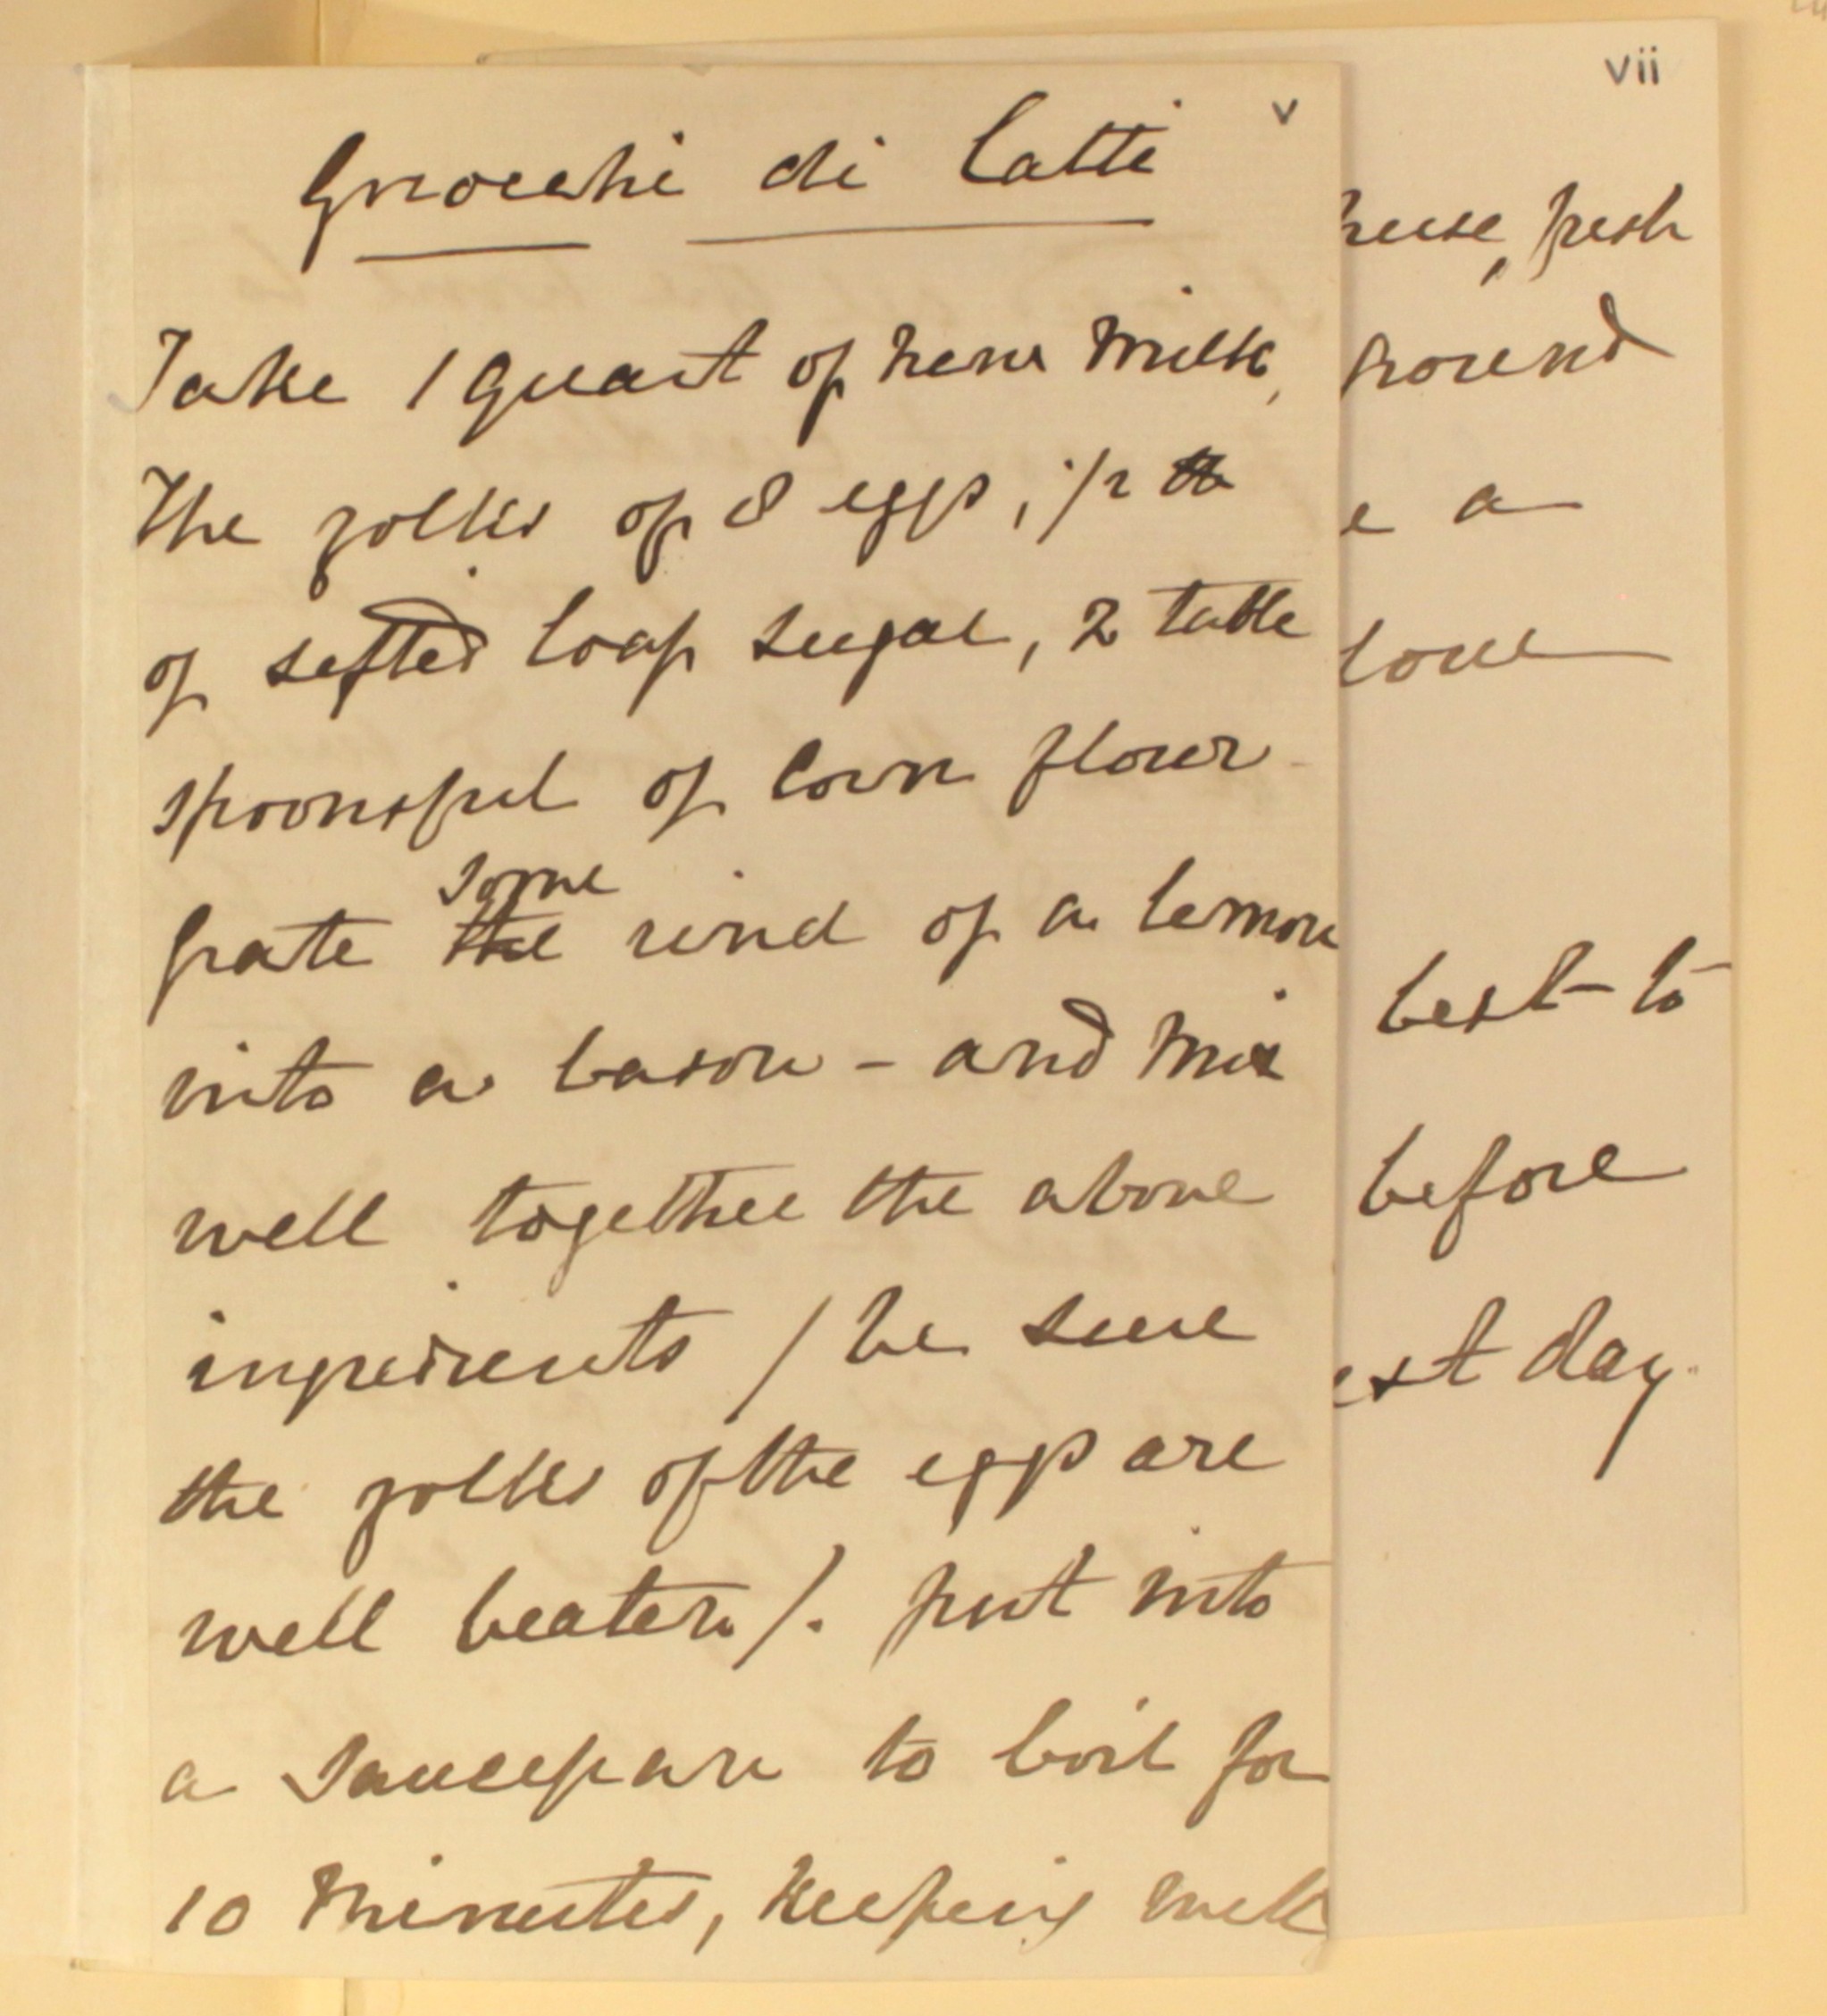 v
Gnocchi di Latti
Take 1 quart of new milk,
The yolks of 8 eggs, 1/2 lb
of sifted loaf sugar, 2 table
spoonsful of corn flour -
grate the some rind of a lemon
into a bason - and mix
well together the above
ingredients / be sure
the yolks of the eggs are
well beaten /. put into
a saucepan to boil for
10 minutes, keeping well
vii
heese, fresh
pound
e a
best to
before
ext day.